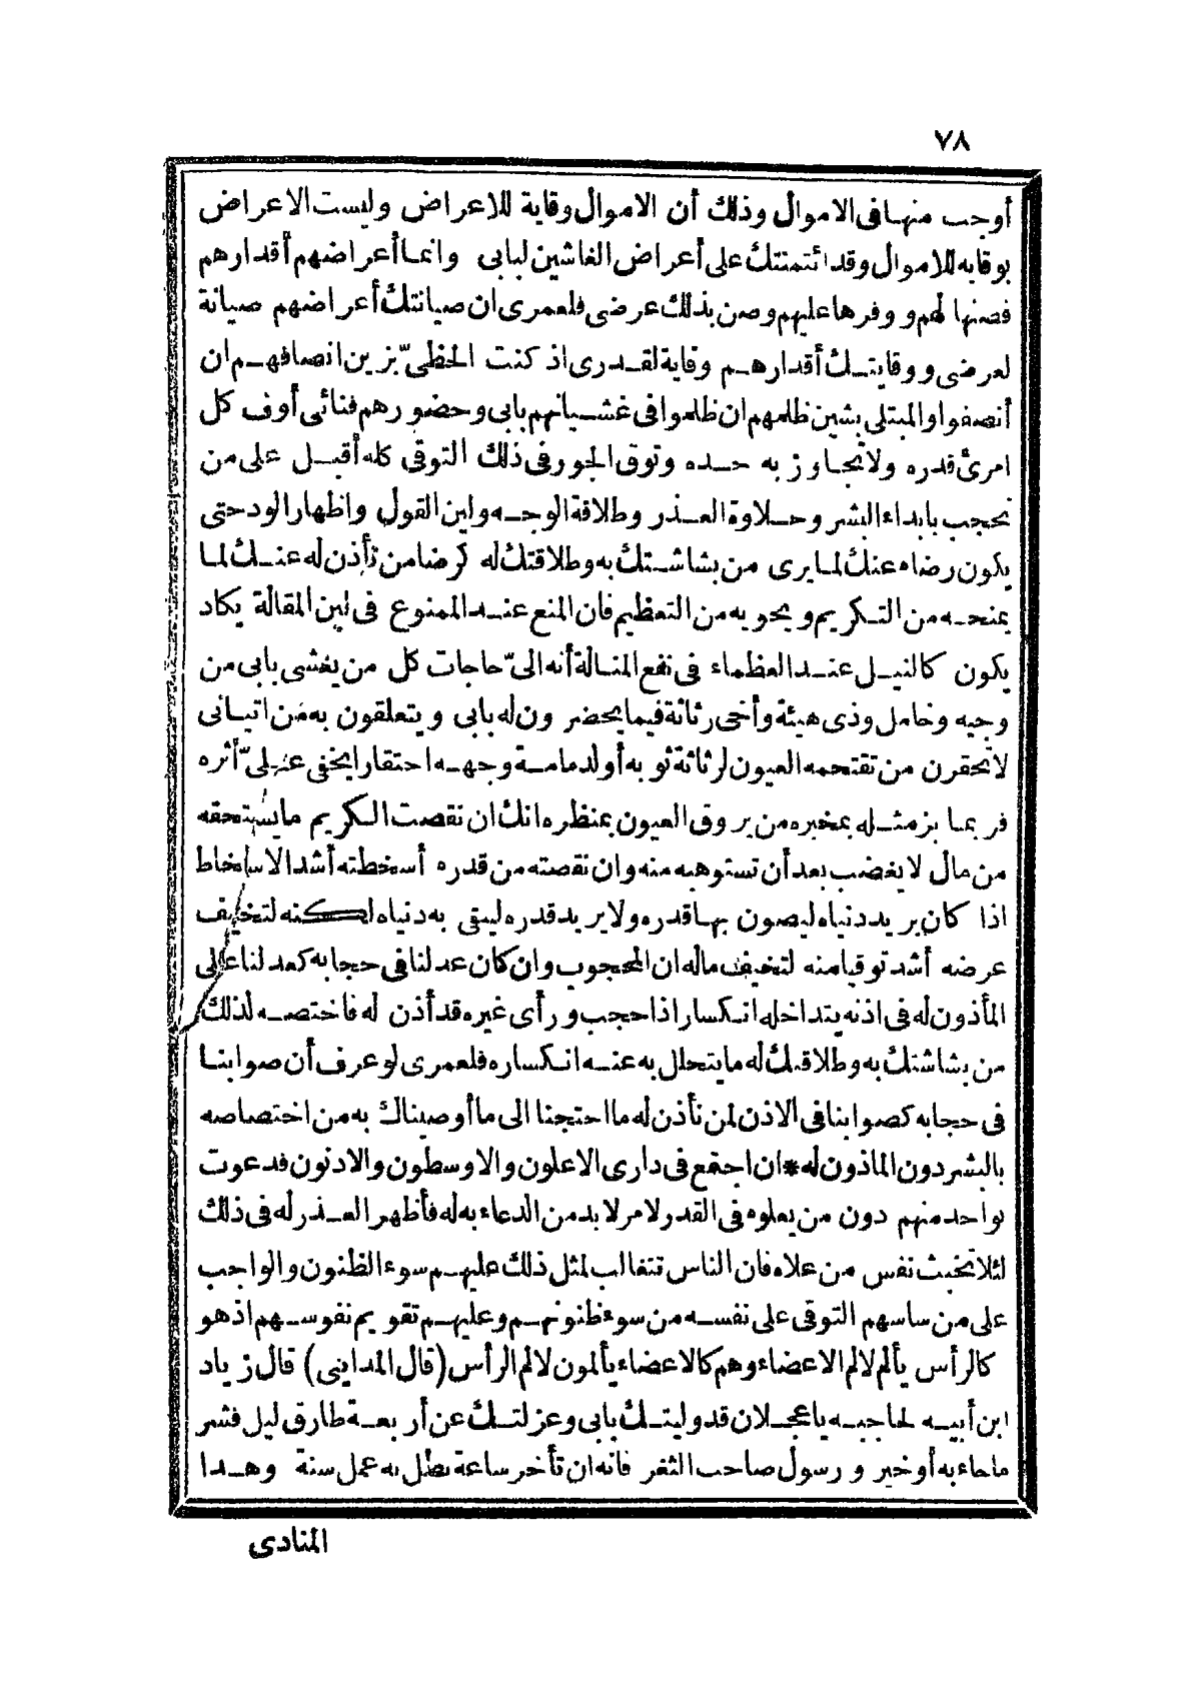 ٧٨
أوجب منها فى الاموال وذلك أن الاموال وقاية للاعراض وليست الاعراض
بوقايه للاموال وقد ائتمنتك على أعراض الغاشين لبابى وانما أعراضهم أقدارهم
فصنها لهم ووفرها عليهم وصن بذلك عرضى فلعمرى ان صيانتك أعراضهم صيانة
لعرضى ووقايتك أقدارهم وقاية لقدرى اذ كنت الحظىّ بزين انصافهم ان
أنصفوا والمبتلى بشين ظلمهم ان ظلموا فى غشيانهم بابى وحضورهم فنائى أوف كل
امرئ قدره ولا تجاوز به حده وتوق الجور فى ذلك التوقى كله أقبل على من
تحجب بابداء البشر وحلاوة العذر وطلاقة الوجه ولين القول واظهار الود حتى
يكون رضاه عنك لما يرى من بشاشتك به وطلاقتك له كرضا من تأذن له عنك لما
يمنحه من التكريم ويحويه من التعظيم فان المنع عند الممنوع فى لين المقالة يكاد
يكون كالنيل عند العظماء فى نفع المنالة أنه الىّ حاجات كل من يغشى بابى من
وجيه وخامل وذى هيئة وأخى رثاثة فيما يحضرون له بابى ويتعلقون به من اتيانى
لا تحقرن من تقتحمه العيون لرثاثة ثوبه أو لدمامة وجهه احتقارا يخفى علىّ أثره
فربما بزمثله بمخبره من يروق العيون بمنظره انك ان نقصت الكريم ما يستحقه
من مال لا يغضب بعد أن تستوهبه منه وان نقصته من قدره أسخطته أشد الاسخاط
اذا كان يريد دنياه ليصون بها قدره ولا يريد قدره ليبقى به دنياه لكنه لتخيف
عرضه أشد توقيا منه لتخيف ماله ان المحجوب وان كان عدلنا فى حجابه كعدلنا على
المأذون له فى اذنه يتداخله انكسار اذا حجب ورأى غيره قد أذن له فاختصه لذلك
من بشاشتك به وطلاقتك له ما يتحلل به عنه انكساره فلعمرى لو عرف أن صوابنا
فى حجابه كصوابنا فى الاذن لمن نأذن له ما احتجنا الى ما أوصيناك به من اختصاصه
بالبشر دون الماذون له * ان اجتمع فى دارى الاعلون والاوسطون والادنون فدعوت
بواحد منهم دون من يعلوه فى القدر لامر لا بد من الدعاء به له فأظهر العذر له فى ذلك
لئلا تخبث نفس من علاه فان الناس تتغالب لمثل ذلك عليهم سوء الظنون والواجب
على من ساسهم التوقى على نفسه من سوء ظنونهم وعليهم تقويم نفوسهم اذ هو
كالرأس يألم لالم الاعضاء وهم كالاعضاء يألمون لالم الرأس (قال المداينى) قال زياد
ابن أبيه لحاجبه يا عجلان قد وليتك بابى وعزلتك عن أربعة طارق ليل فشر
ما جاء به أو خير ورسول صاحب الثغر فانه ان تأخر ساعة بطل به عمل سنة وهذا
المنادى